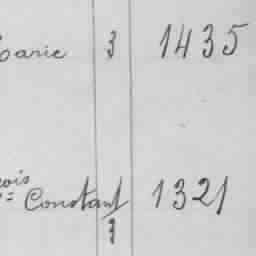 Marie 3 1435
çois
e= Constant 1321
3